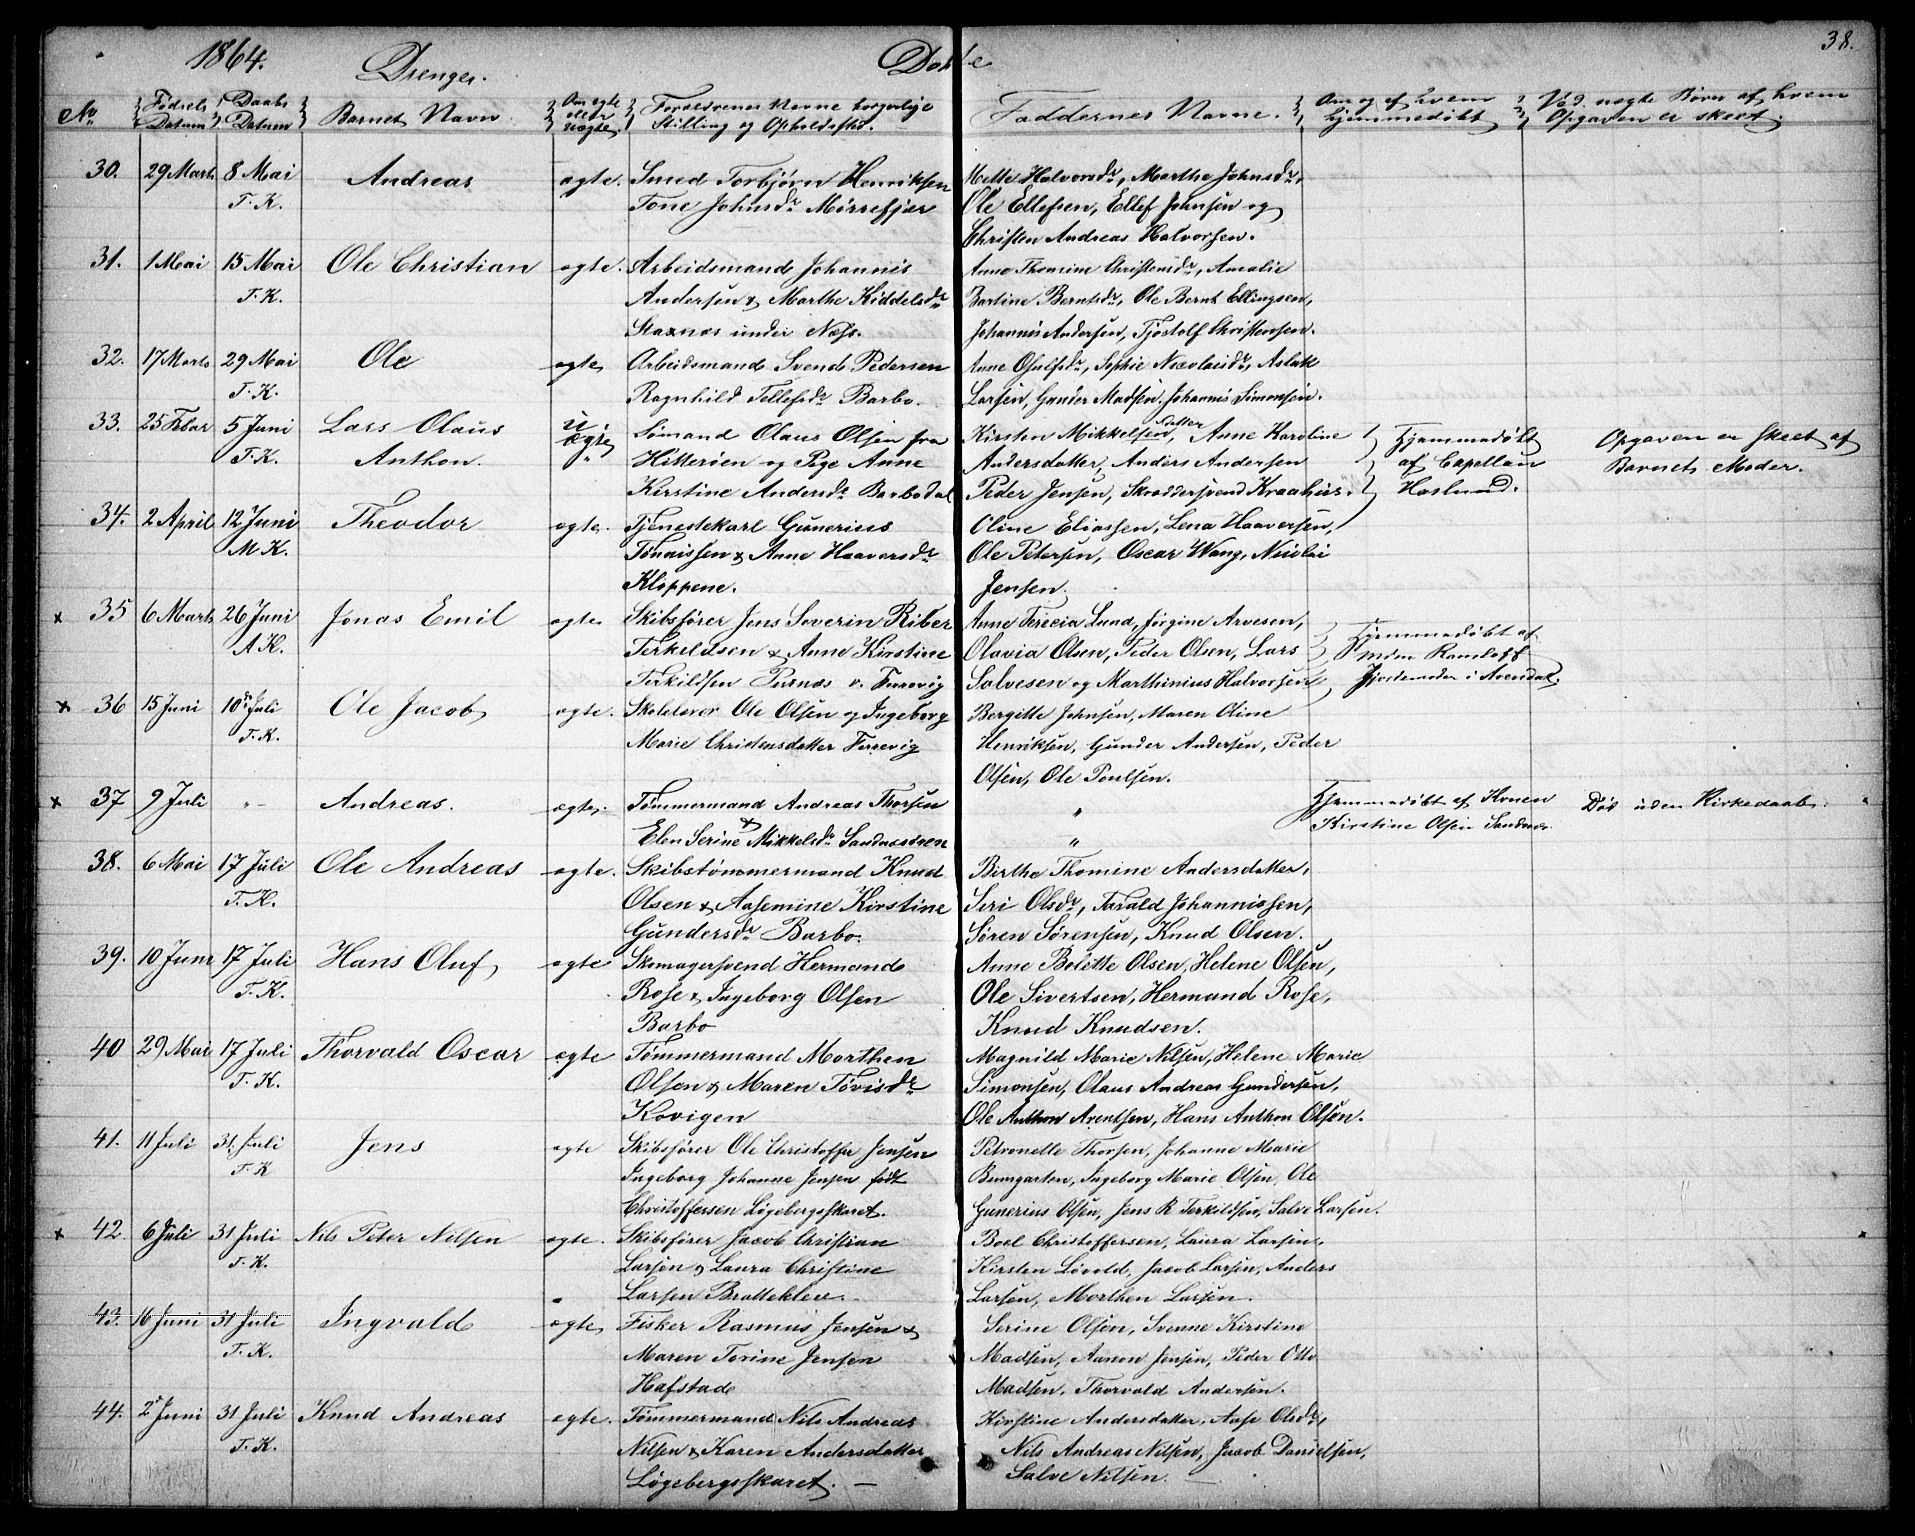 1864. Drenger. Døbte 38.
No Fødsels Datum Daabs Datum Barnets Navn Om ægte eller uægte. Forældrenes Navne borgerlige Stilling og Opholdssted. Faddernes Navne. Om og af hvem hjemmedøbt Ved uægte Børn af hvem Opgaven er skeet.
30. 29 Marts 8 Mai Andreas ægte. Smed Torbjørn Henriksen Mette Halvorsdr, Marthe Johnsdr,
T. K. Tone Johnsdr Mørrefjær Ole Ellefsen, Ellef Johnsen og
Christen Andreas Halvorsen.
31. 1 Mai 15 Mai Ole Christian ægte. Arbeidsmand Johannis Anne Thomine Christensdr, Amalie
T. K. Andersen & Marthe Kiddelsdr Bartine Berntsdr, Ole Bernt Ellingsen,
Staxnæs under Næss. Johannis Andersen, Tjøstolf Christensen.
32. 17 Marts 29 Mai Ole ægte Arbeidsmand Svend Pedersen Anne Osulfsdr, Sophie Nicolaisdr, Aslak
T. K. Ragnhild Tellefsdr Barbo. Larsen, Gunder Madsen, Johannis Simonsen.
33. 25 Febar 5 Juni Lars Olaus u. Sømand Olaus Olsen fra Kirsten Mikkelsen Datter, Anne Karoline Hjemmedøbt Opgaven er skeet af
T. K. Anthon. ægte Hitterøen og Pige Anne Andersdatter, Anders Andersen af Capellan Barnets Moder.
Kirstine Andersdr Barbodal Peder Jensen, Skræddersvend Kraahus. Haslund.
34. 2 April 12 Juni Theodor ægte. Tjenestekarl Gunerius Oline Eliassen, Lena Haaversen,
M K. Tønnissen & Anne Haaversdr Ole Petersen, Oscar Wang, Nicolai
Kloppene. Jensen.
x 35 6 Marts 26 Juni Jonas Emil ægte Skibsfører Jens Severin Riber Anne Terecia Lund, Jørgine Arvesen, Hjemmedøbt af
A K. Terkeldsen & Anne Kirstine Olavia Olsen, Peder Olsen, Lars Mdm Ramleff
Terkildsen Purnæs v. Færevig Salvesen og Marthinius Halvorsen Gjordemoder i Arendal.
x 36 15 Juni 10de Juli Ole Jacob ægte. Skolelærer Ole Olsen og Ingeborg Bergitte Johnsen, Maren Oline
T. K. Marie Christensdatter Færevig Henriksen, Gunder Andersen, Peder
Olsen, Ole Poulsen.
x 37 9 Juli " - Andreas. ægte. Tømmermand Andreas Thorsen " Hjemmedøbt af Konen Død uden Kirkedaab.
& Elen Serine Mikkelsdr Sandnæsøren " Kirstine Olsen Sandnæs.
38. 6 Mai 17 Juli Ole Andreas ægte. Skibstømmermand Knud Birthe Thomine Andersdatter,
T. K. Olsen & Aasemine Kirstine Seri Olsdr, Tarald Johannissen,
Gundersdr Barbo. Søren Sørensen, Knud Olsen.
39. 10 Juni 17 Juli Hans Oluf ægte Skomagersvend Hermand Anne Bolette Olsen, Helene Olsen,
T. K. Rose & Ingeborg Olsen Ole Sivertsen, Hermand Rose,
Barbo Knud Knudsen.
40 29 Mai 17 Juli Thorvald Oscar ægte Tømmermand Morthen Magnild Marie Nilsen, Helene Marie
T. K. Olsen & Maren Tøvisdr Simonsen, Olaus Andreas Gundersen,
Kovigen Ole Anthon Arentsen, Hans Anthon Olsen.
41. 11 Juli 31 Juli Jens ægte Skibsfører Ole Christoffer Jensen Petronelle Thorsen, Johanne Marie
T. K Ingeborg Johanne Jensen født Bumgarten, Ingeborg Marie Olsen, Ole
Christoffersen Løgebergsskaret. Gunerius Olsen, Jens R Terkildsen, Salve Larsen.
x 42. 6 Juli 31 Juli Nils Peter Nilsen ægte. Skibsfører Jacob Christian Boel Christoffersen, Laura Larsen,
T. K. Larsen & Laura Christine Kirsten Løvold, Jacob Larsen, Anders
Larsen Bratteklev. Larsen, Morthen Larsen.
43. 16 Juni 31 Juli Ingvald ægte Fisker Rasmus Jensen & Serine Olsen, Svenne Kirstine
T. K. Maren Torine Jensen Madsen, Aanon Jensen, Peder Otto
Hafstad Madsen, Thorvald Andersen.
44. 2 Juni 31 Juli Knud Andreas ægte. Tømmermand Nils Andreas Kirstine Andersdatter, Aase Olsdr,
T. K. Nilsen & Karen Andersdatter Nils Andreas Nilsen, Jacob Danielsen,
Løgebergsskaret. Salve Nilsen.